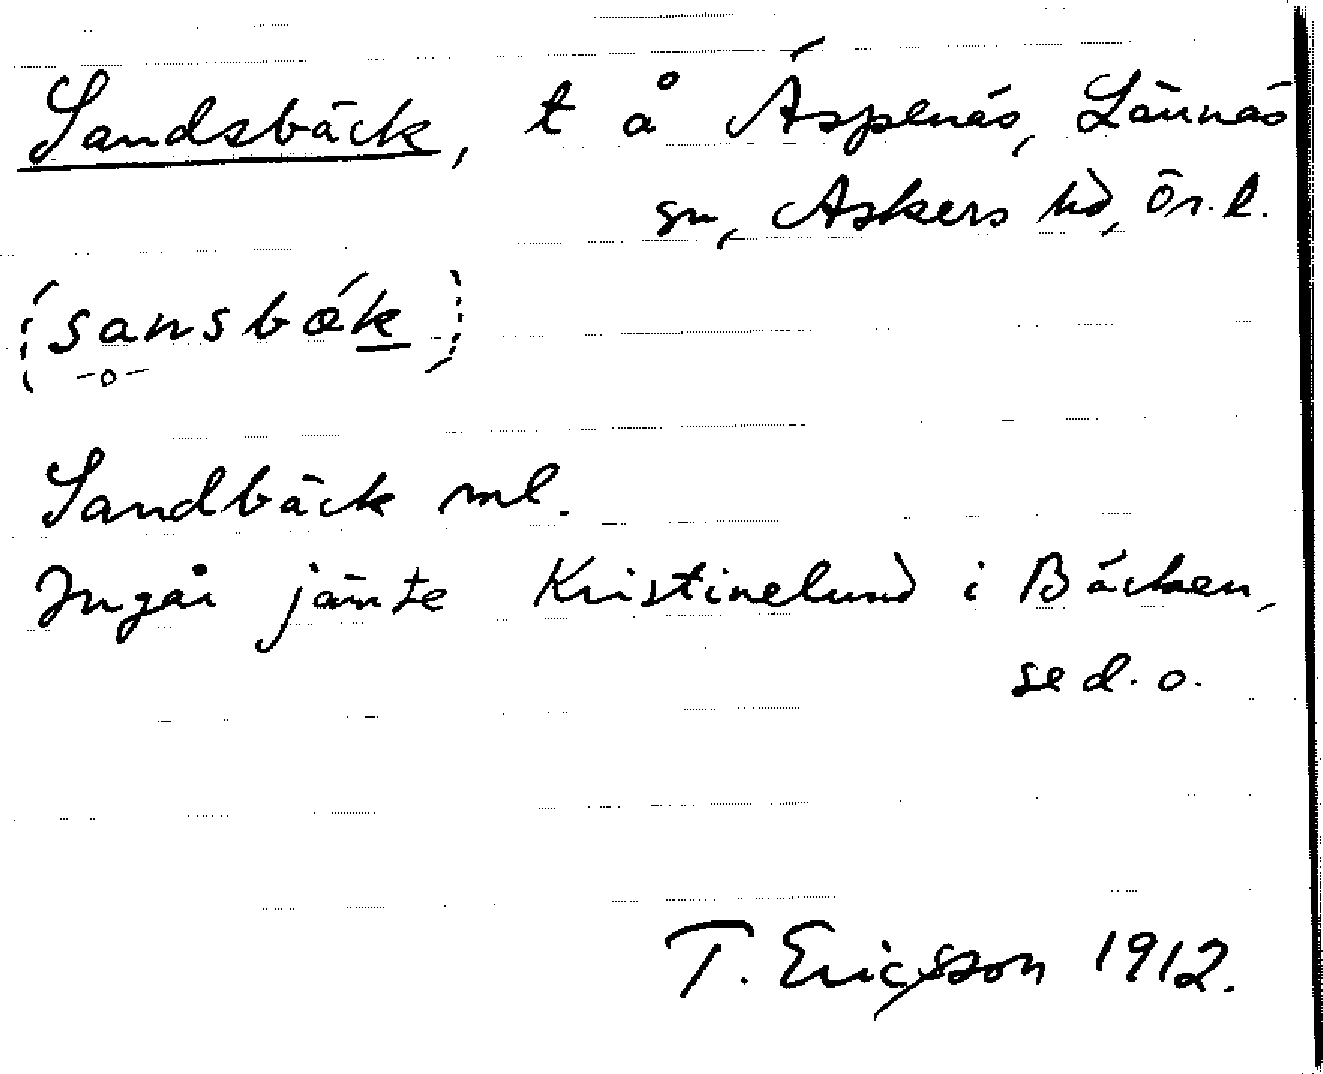 Sandsbäck, t å Áspenäs, Lännäs
sn, Askers hd, Ör. l.
(sansbǽk)
Sandbäck ml.
Ingår jämte Kristinelund i Bäcken,
se d. o.
T. Ericsson 1912.